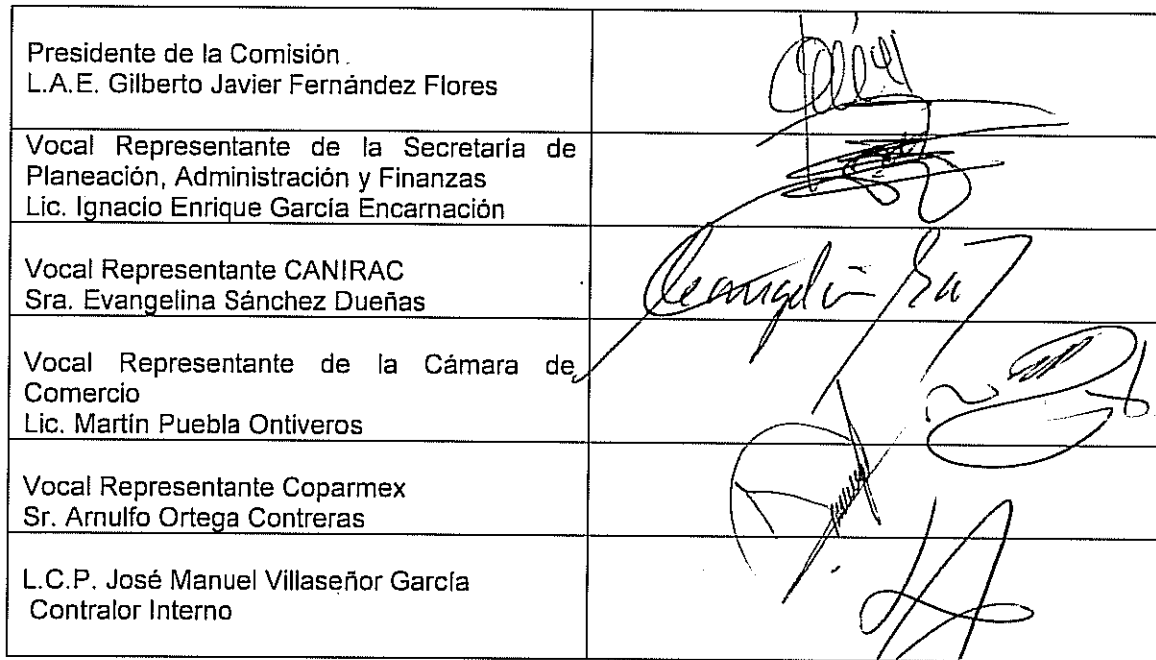 Presidente de la Comisión.
L.A.E. Gilberto Javier Fernández Flores
Vocal Representante de la Secretaría de
Planeación, Administración y Finanzas
Lic. Ignacio Enrique García Encarnación
Vocal Representante CANIRAC
Sra. Evangelina Sánchez Dueñas
Vocal Representante de la Cámara de
Comercio
Lic. Martín Puebla Ontiveros
Vocal Representante Coparmex
Sr. Arnulfo Ortega Contreras
L.C.P. José Manuel Villaseñor García
Contralor Interno